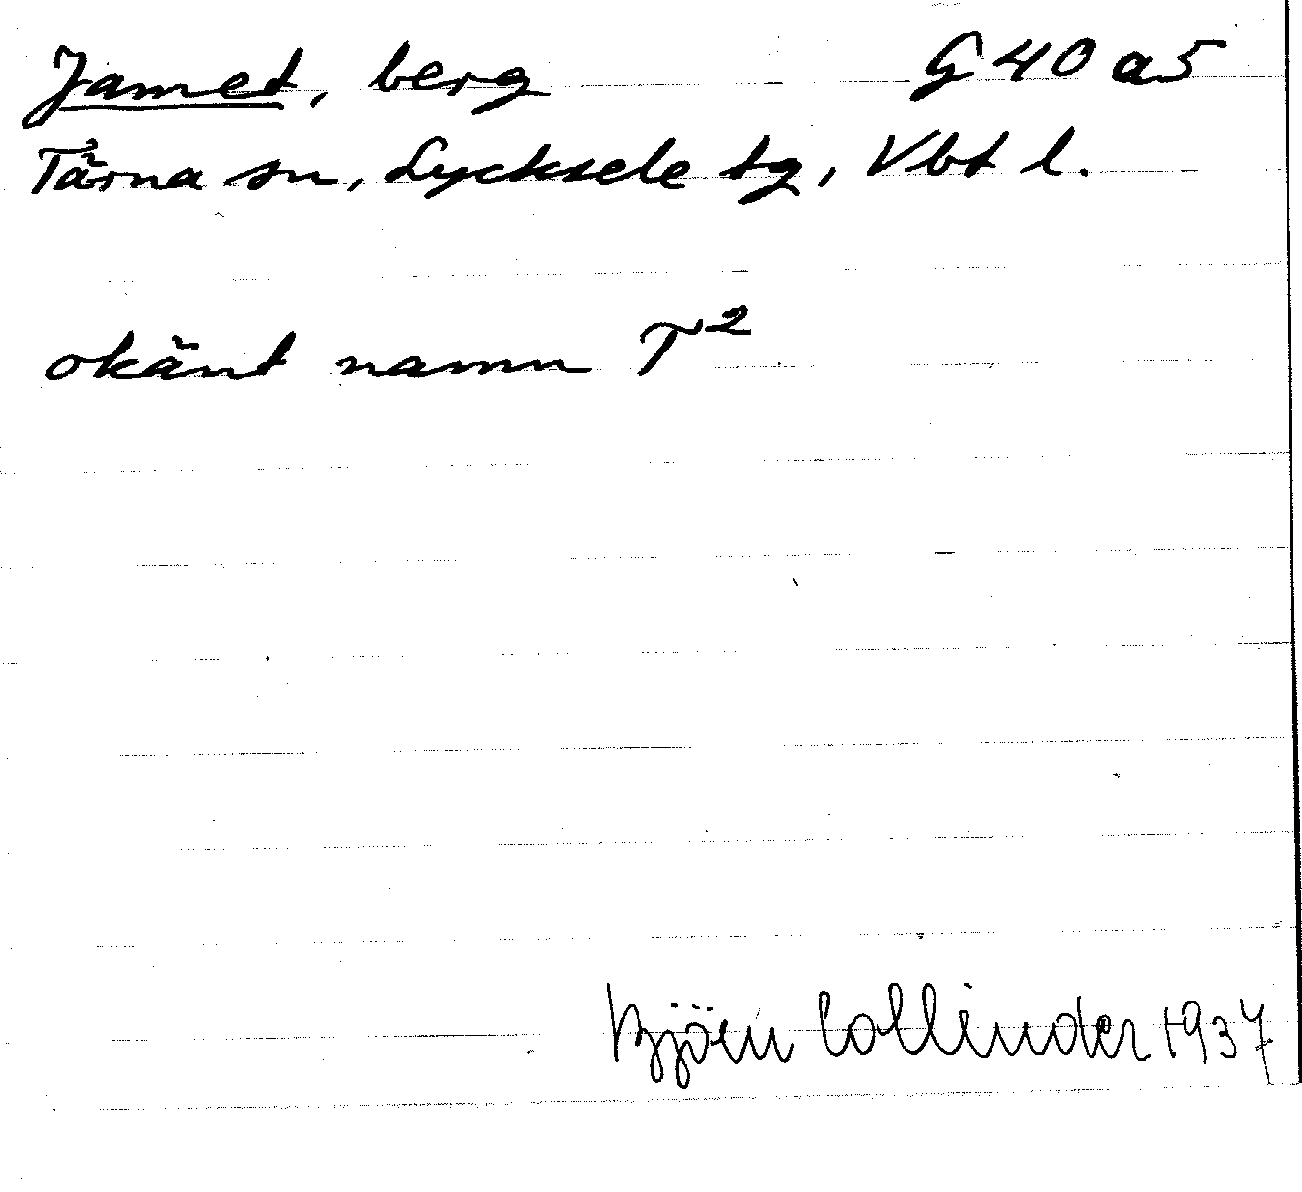 Jamet, berg G 40 a5
Tärna sn, Lycksele tg, Vbt l.
okänt namn T²
Björn Collinder 1937